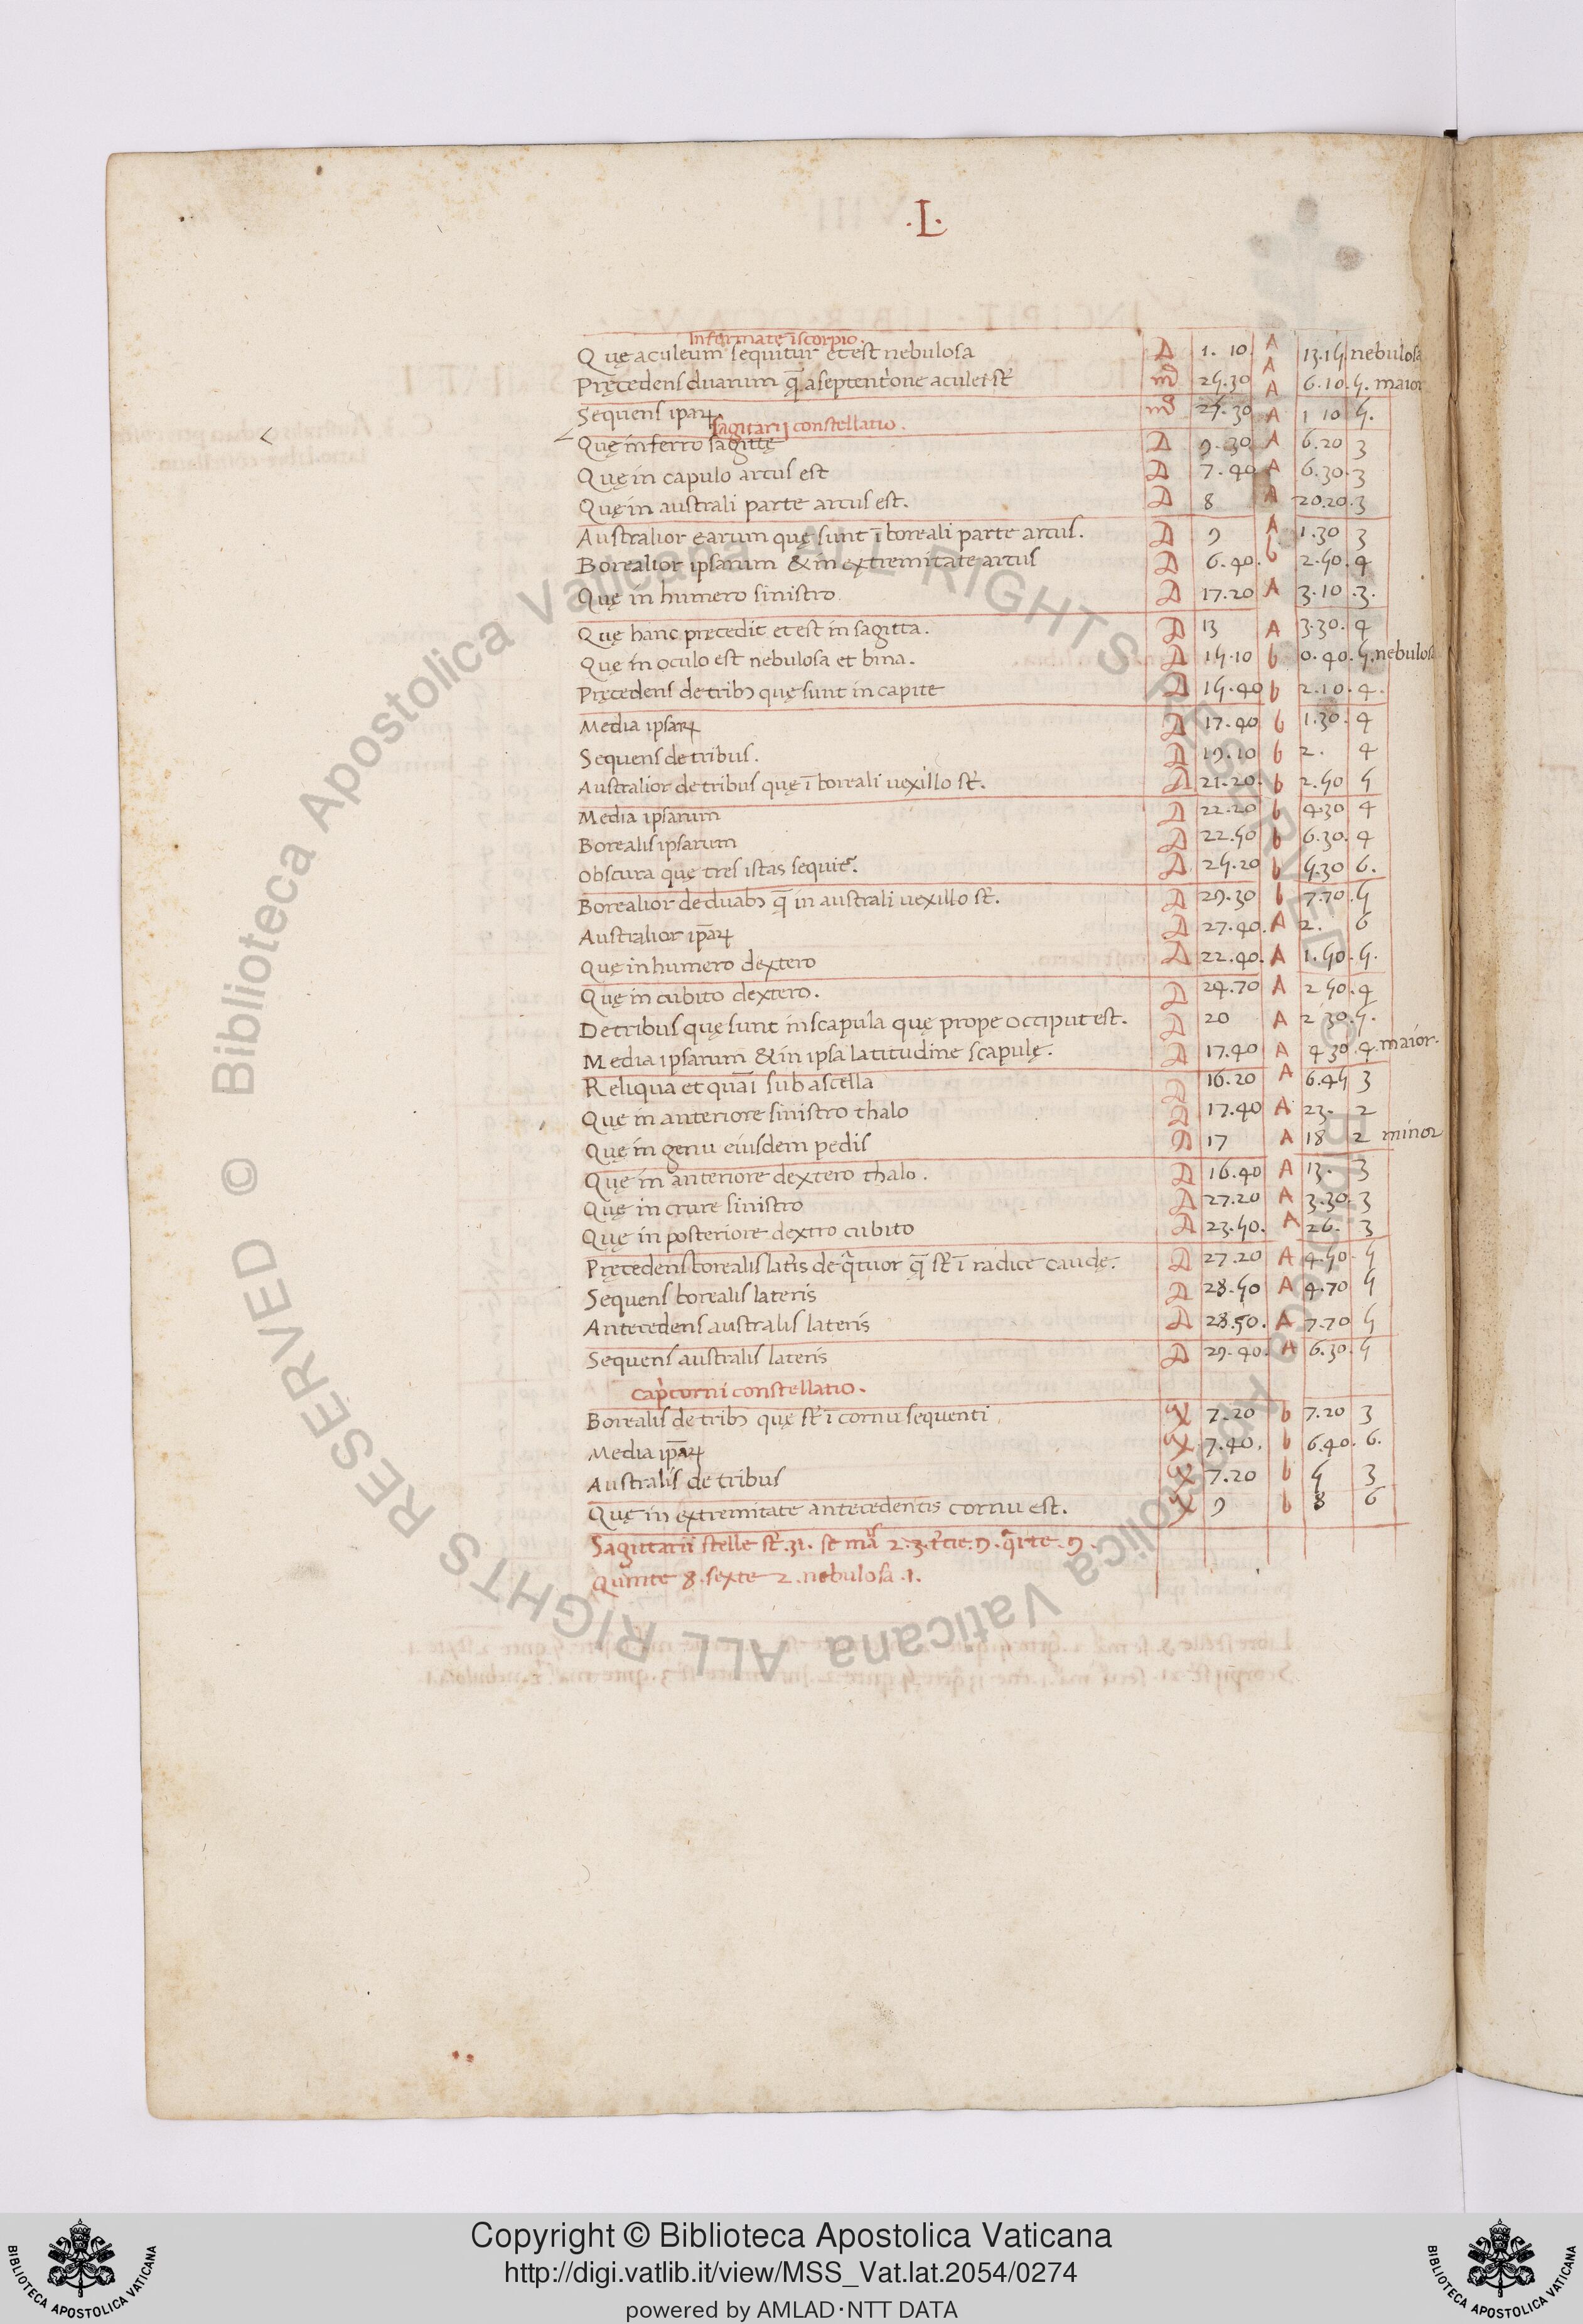 .L.
Informatę ī scorpio.
Quę aculeum sequitur et est nebulosa 1. 10 A 13.15 nebulosa
Pręcedens duarum q̄ a septentr̓one aculei st̄ ♏ 25.30 A 6.10.5. maior
Sequens ipaꝝ ♏ 25.30 A 1 10 5.
Sagitarij constellatio.
Quę in ferro sagittę 9.30 A 6.20 3
Quę in capulo arcus est 7.40 A 6.30.3
Quę in australi parte arcus est. 8 A 20.20.3
Australior earum quę sunt ī boreali parte arcus. 9 A 1.30 3
Borealior ipsarum & in extremitate arcus 6.40. b 2.50.4
Quę in humero sinistro 17.20 A 3.10.3.
Quę hanc pręcedit et est in sagitta. 13 A 3.30.4
Quę in oculo est nebulosa et bina. 15.10 b 0.40.5. nebulosa
Pręcedens de tribꝫ quę sunt in capite 15.40 b 2.10.4.
Media ipsaꝝ 17.40 b 1.30.4
Sequens de tribus. 19.10 b 2. 4
Australior de tribus quę ī boreali uexillo st̄. 21.20. b 2.50 5
Media ipsarum 22.20 b 4.30 4
Borealis ipsarum 22.50 b 6.30.4
Obscura quę tres istas sequit᷑. 25.20 b 5.30 6.
Borealior de duabꝫ q̄ in australi uexillo st̄. 29.30 b 7.70.5
Australior ip̄aꝝ 27.40. A 2. 6
Quę in humero dextero 22.40. A 1.50.5.
Quę in cubito dextero. 24.70 A 2 50.4
De tribus quę sunt in scapula quę prope occiput est. 20 A 2 30.5.
Media ipsarum & in ipsa latitudine scapulę. 17.40 A 4 30.4. maior.
Reliqua et quā ī sub ascella 16.20 A 6.45 3
Quę in anteriore sinistro thalo 17.40 A 23. 2
Quę in genu eiusdem pedis 17 A 18 2 minor
Quę in anteriore dextero thalo. 16.40 A 13. 3
Quę in crure sinistro 27.20 A 3.30.3
Quę in posteriore dextro cubito 23.50. A 26. 3
Pręcedens borealis lateris de q̄tuor q̄ st̄ ī radice caudę. 27.20 A 4.50.5
Sequens borealis lateris 28.50 A 4.70 5
Antecedens australis lateris 28.50. A 7.70 5
Sequens australis lateris 29.40. A 6.30.5
Cap̓corni constellatio.
Borealis de tribꝫ quę st̄ ī cornu sequenti 7.20 b 7.20 3
Media ip̄aꝝ 7.40. b 6.40.6.
Australis de tribus 7.20 b 5 3
Quę in extremitate antecedentis cornu est. 9 b 8 6
Sagittarii stelle st̄.31. se mā 2.3.t̓cie.9.q̄rte.9.
Quinte 8.sexte 2.nebulosa.1.
Biblioteca Apostolica Vaticana ALL RIGHTS RESERVED ©
Biblioteca Apostolica Vaticana ALL RIGHTS RESERVED ©
Copyright © Biblioteca Apostolica Vaticana
http://digi.vatlib.it/view/MSS_Vat.lat.2054/0274
powered by AMLAD·NTT DATA
BIBLIOTECA APOSTOLICA VATICANA
BIBLIOTECA APOSTOLICA VATICANA